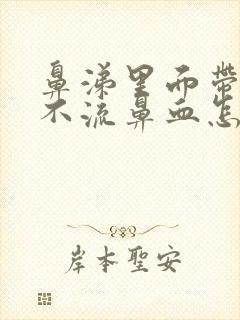 鼻涕里面带
不流鼻血怎
岸本聖安